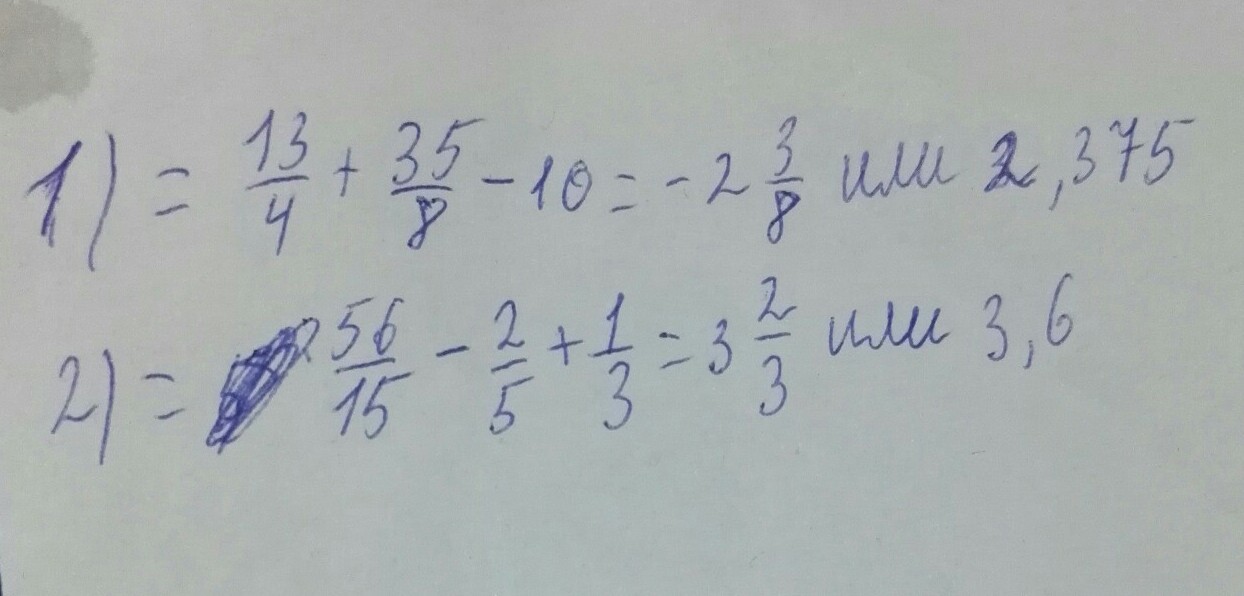 1) = 13/4 + 35/8 - 10 = - 2 3/8 или 2,375
2) = 56/15 - 2/5 + 1/3 = 3 2/3 или 3,6